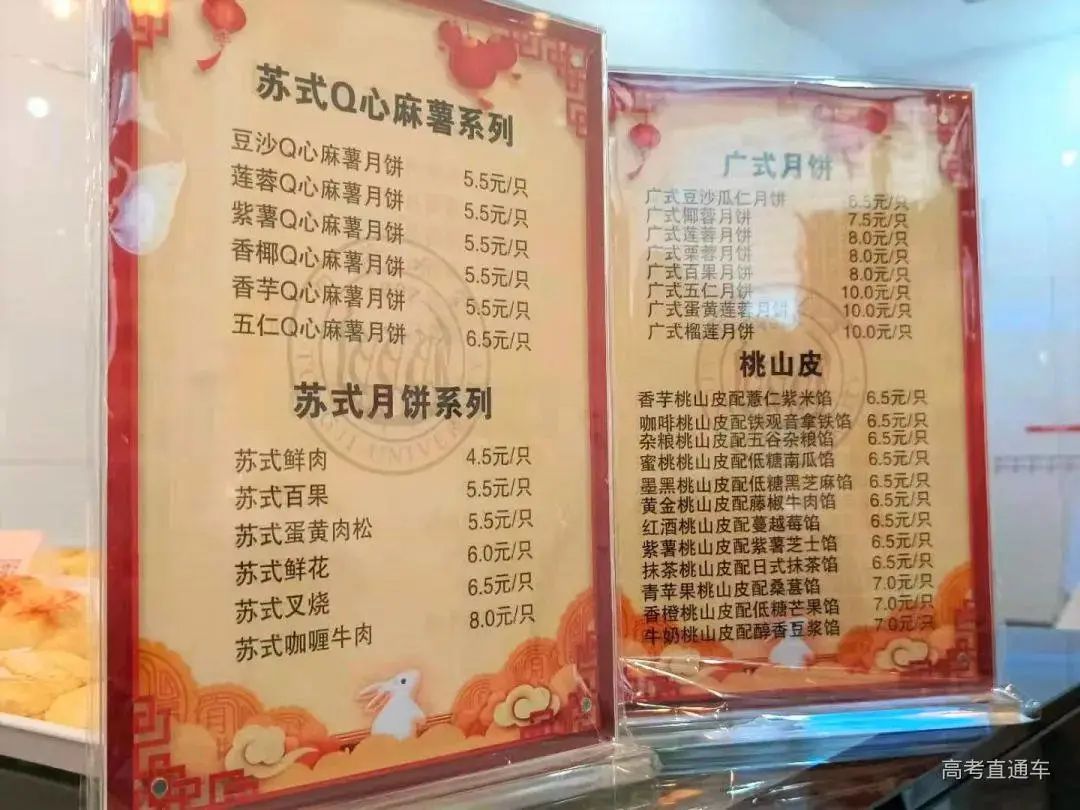 苏式Q心麻薯系列
豆沙Q心麻薯月饼 5.5元/只
莲蓉Q心麻薯月饼 5.5元/只
紫薯Q心麻薯月饼 5.5元/只
香椰Q心麻薯月饼 5.5元/只
香芋Q心麻薯月饼 5.5元/只
五仁Q心麻薯月饼 6.5元/只
苏式月饼系列
苏式鲜肉 4.5元/只
苏式百果 5.5元/只
苏式蛋黄肉松 5.5元/只
苏式鲜花 6.0元/只
苏式叉烧 6.5元/只
苏式咖喱牛肉 8.0元/只
广式月饼
广式豆沙瓜仁月饼 6.5元/只
广式椰蓉月饼 7.5元/只
广式莲蓉月饼 8.0元/只
广式栗蓉月饼 8.0元/只
广式百果月饼 8.0元/只
广式五仁月饼 10.0元/只
广式蛋黄莲蓉月饼 10.0元/只
广式榴莲月饼 10.0元/只
桃山皮
香芋桃山皮配薏仁紫米馅 6.5元/只
咖啡桃山皮配铁观音拿铁馅 6.5元/只
杂粮桃山皮配五谷杂粮馅 6.5元/只
蜜桃桃山皮配低糖南瓜馅 6.5元/只
墨黑桃山皮配低糖黑芝麻馅 6.5元/只
黄金桃山皮配藤椒牛肉馅 6.5元/只
红酒桃山皮配蔓越莓馅 6.5元/只
紫薯桃山皮配紫薯芝士馅 6.5元/只
抹茶桃山皮配日式抹茶馅 6.5元/只
青苹果桃山皮配桑葚馅 7.0元/只
香橙桃山皮配低糖芒果馅 7.0元/只
牛奶桃山皮配醇香豆浆馅 7.0元/只
高考直通车